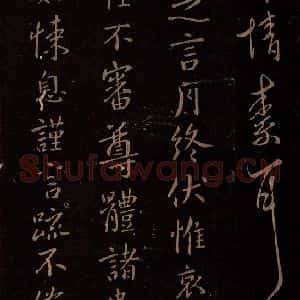 情素耳
言月終伏惟哀
不審尊體諸
悚息謹言疏不
Shufawang.cn